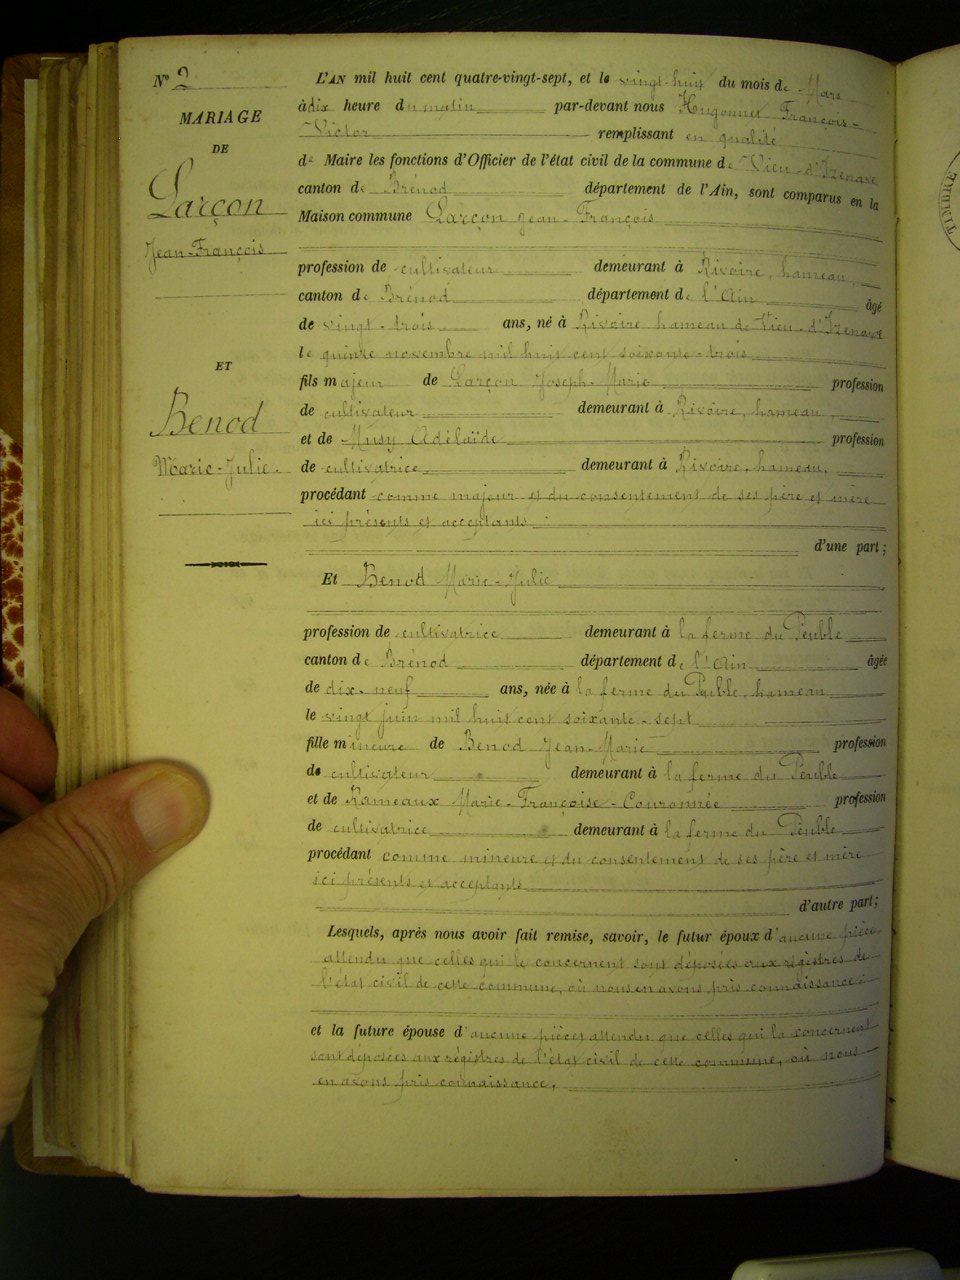 N° 2
MARIAGE
DE
Larçon
Jean-François
ET
Benod
Marie-Julie
L'AN mil huit cent quatre-vingt-sept, et le vingt-huit du mois de Mars
à dix heure du matin par-devant nous Hugonnet François-
Victor remplissant en qualité
de Maire les fonctions d'Officier de l'état civil de la commune de Vieu-d'Izenave
canton de Brénod département de l'Ain, sont comparus en la
Maison commune Larçon Jean-François
profession de cultivateur demeurant à Rivoire, hameau,
canton de Brénod département de l'Ain âgé
de vingt-trois ans, né à Rivoire hameau de Vieu-d'Izenave
le quinze novembre mil huit cent soixante-trois
fils majeur de Larçon Joseph-Marie profession
de cultivateur demeurant à Rivoire, hameau,
et de Musy Adélaïde profession
de cultivatrice demeurant à Rivoire, hameau,
procédant comme majeur et du consentement de ses père et mère
ici présents et acceptants
d'une part;
Et Benod Marie-Julie
profession de cultivatrice demeurant à la ferme du Peuble
canton de Brénod département de l'Ain âgée
de dix-neuf ans, née à la ferme du Peuble, hameau
le vingt juin mil huit cent soixante-sept
fille mineure de Benod Jean-Marie profession
de cultivateur demeurant à la ferme du Peuble
et de Rameaux Marie-Françoise-Couronnée profession
de cultivatrice demeurant à la ferme du Peuble
procédant comme mineure et du consentement de ses père et mère
ici présents et acceptants
d'autre part;
Lesquels, après nous avoir fait remise, savoir, le futur époux d'aucune pièce,
attendu que celles qui le concernent sont déposées aux régistres de
l'état civil de cette commune, où nous en avons pris connaissance.
et la future épouse d'aucune pièces attendu que celles qui la concernent
sont déposées aux régistres de l'état civil de cette commune, où nous
en avons pris connaissance,
TIMBRE